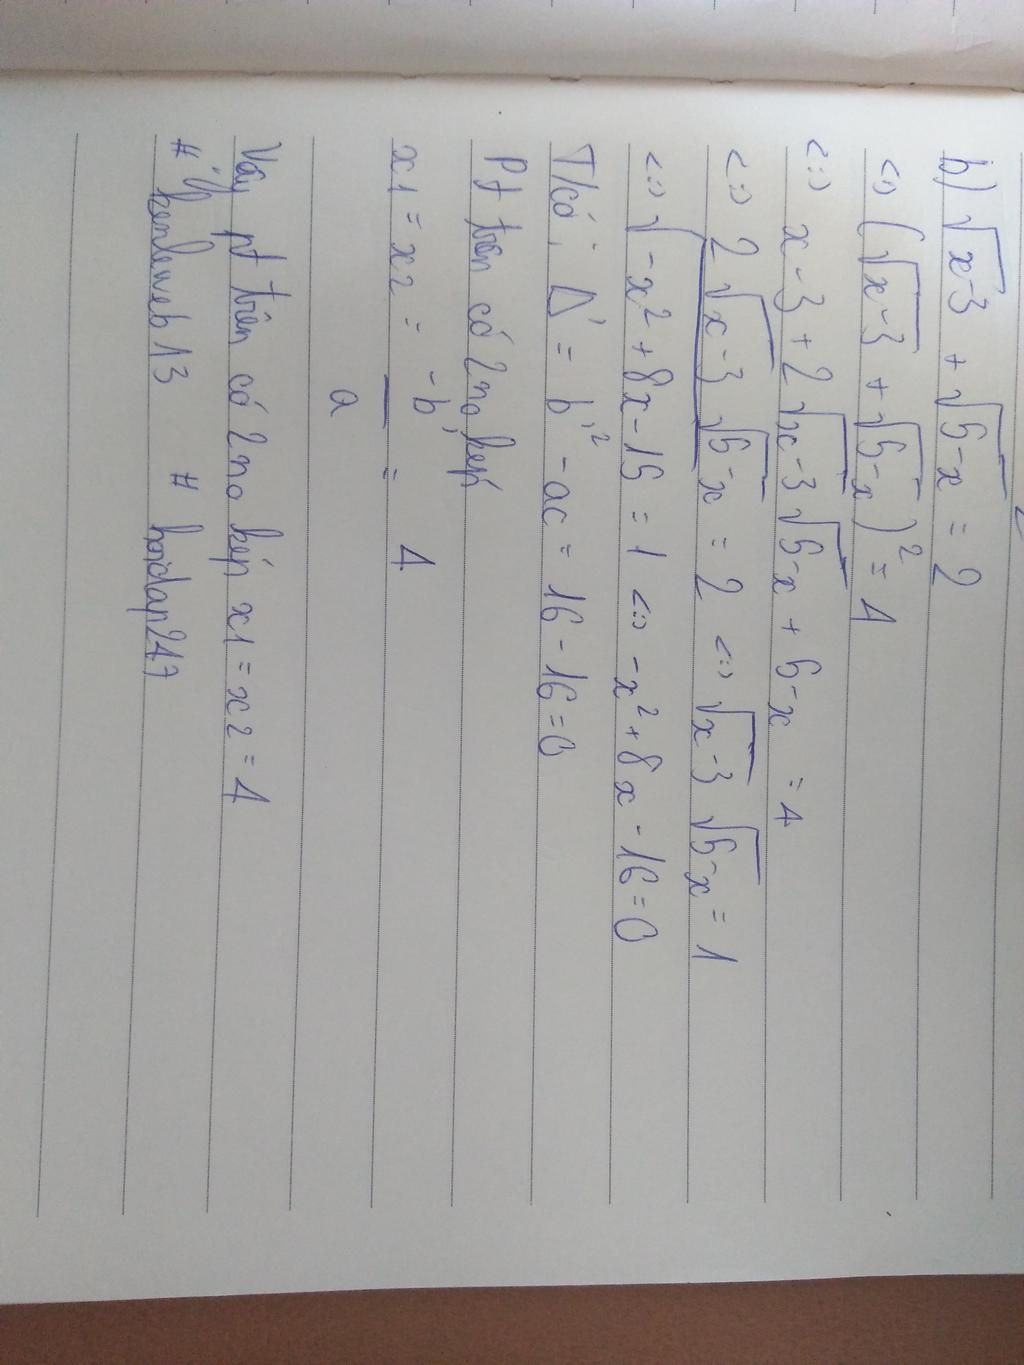 b) √x-3 + √5-x = 2
<=> (√x-3 + √5-x)² = 4
<=> x-3 + 2√x-3 √5-x + 5-x = 4
<=> 2√x-3 √5-x = 2 <=> √x-3 √5-x = 1
<=> √-x²+8x-15 = 1 <=> -x²+8x-16=0
T/có: Δ' = b'² - ac = 16-16=0
Pt trên có 2 n₀ kép
x1 = x2 = -b'/a = 4
Vậy pt trên có 2 n₀ kép x1 = x2 = 4
# hoidap247